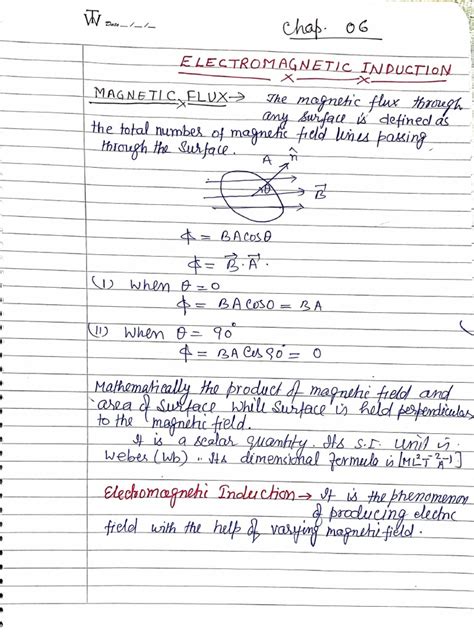 TW Date _/_/_
Chap. 06
ELECTROMAGNETIC INDUCTION
MAGNETIC FLUX → The magnetic flux through
any surface is defined as
the total number of magnetic field lines passing
through the surface.
A n̂
θ
B⃗
ϕ = BAcosθ
ϕ = B⃗.A⃗.
(I) when θ = 0
ϕ = BACOS0 = BA
(II) when θ = 90°
ϕ = BA Cos 90° = 0
Mathematically the product of magnetic field and
area of surface while surface is held perpendicular
to the magnetic field.
It is a scalar quantity. Its S.I. unit is
Weber (Wb). Its dimensional formula is [ML²T⁻²A⁻¹]
Electromagnetic Induction → It is the phenomenon
of producing electric
field with the help of varying magnetic field.